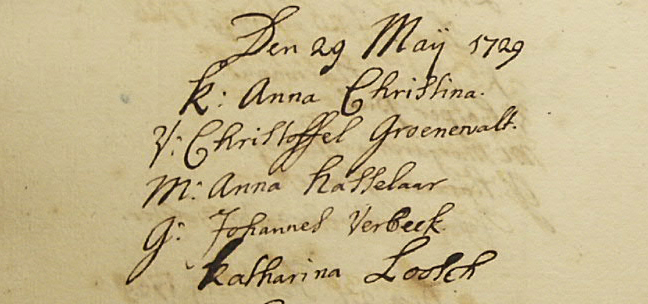 Den 29 Maÿ 1729
k: Anna Christina.
V: Christoffel Groenewalt.
M: Anna Hasselaar
G: Johannes Verbeek.
Katharina Loosch